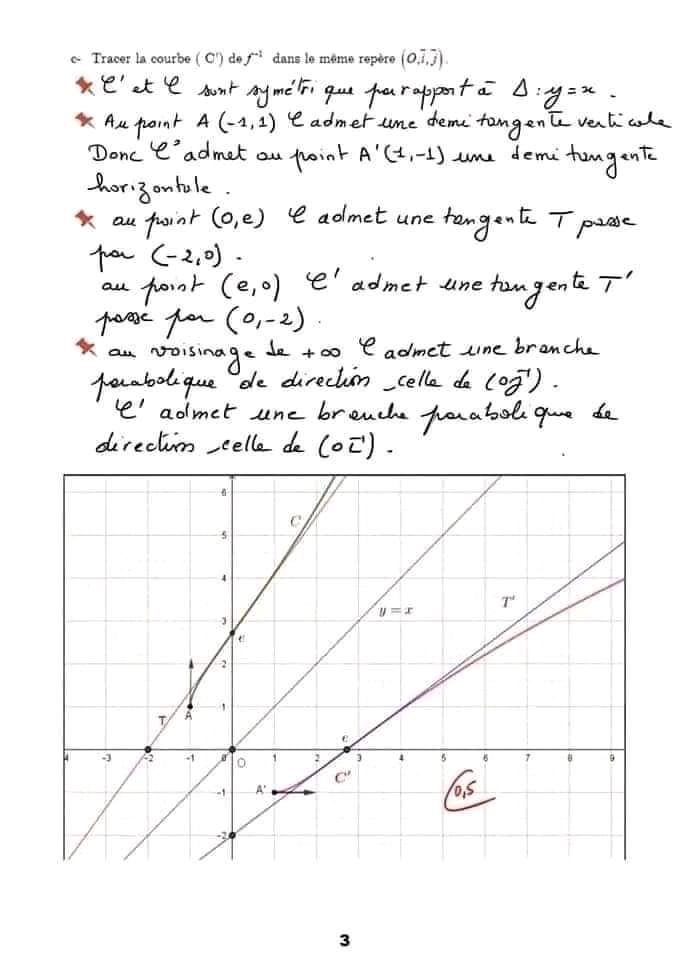 c- Tracer la courbe ( C') de f⁻¹ dans le même repère (O,i⃗,j⃗).
C' et C sont symétrique par rapport à Δ : y = x .
Au point A (-1,1) C admet une demi tangente verticale
Donc C' admet au point A'(1,-1) une demi tangente
horizontale .
au point (0,e) C admet une tangente T passe
par (-2,0) .
au point (e,0) C' admet une tangente T'
passe par (0,-2) .
au voisinage de +∞ C admet une branche
parabolique de direction celle de (oj⃗) .
C' admet une branche parabolique de
direction celle de (oi⃗) .
6
C
5
4
y = x
T'
3
e
2
T
A
1
e
4 -3 -2 -1 0 O 1 2 3 4 5 6 7 8 9
A'
C'
-1
0,5
-2
3